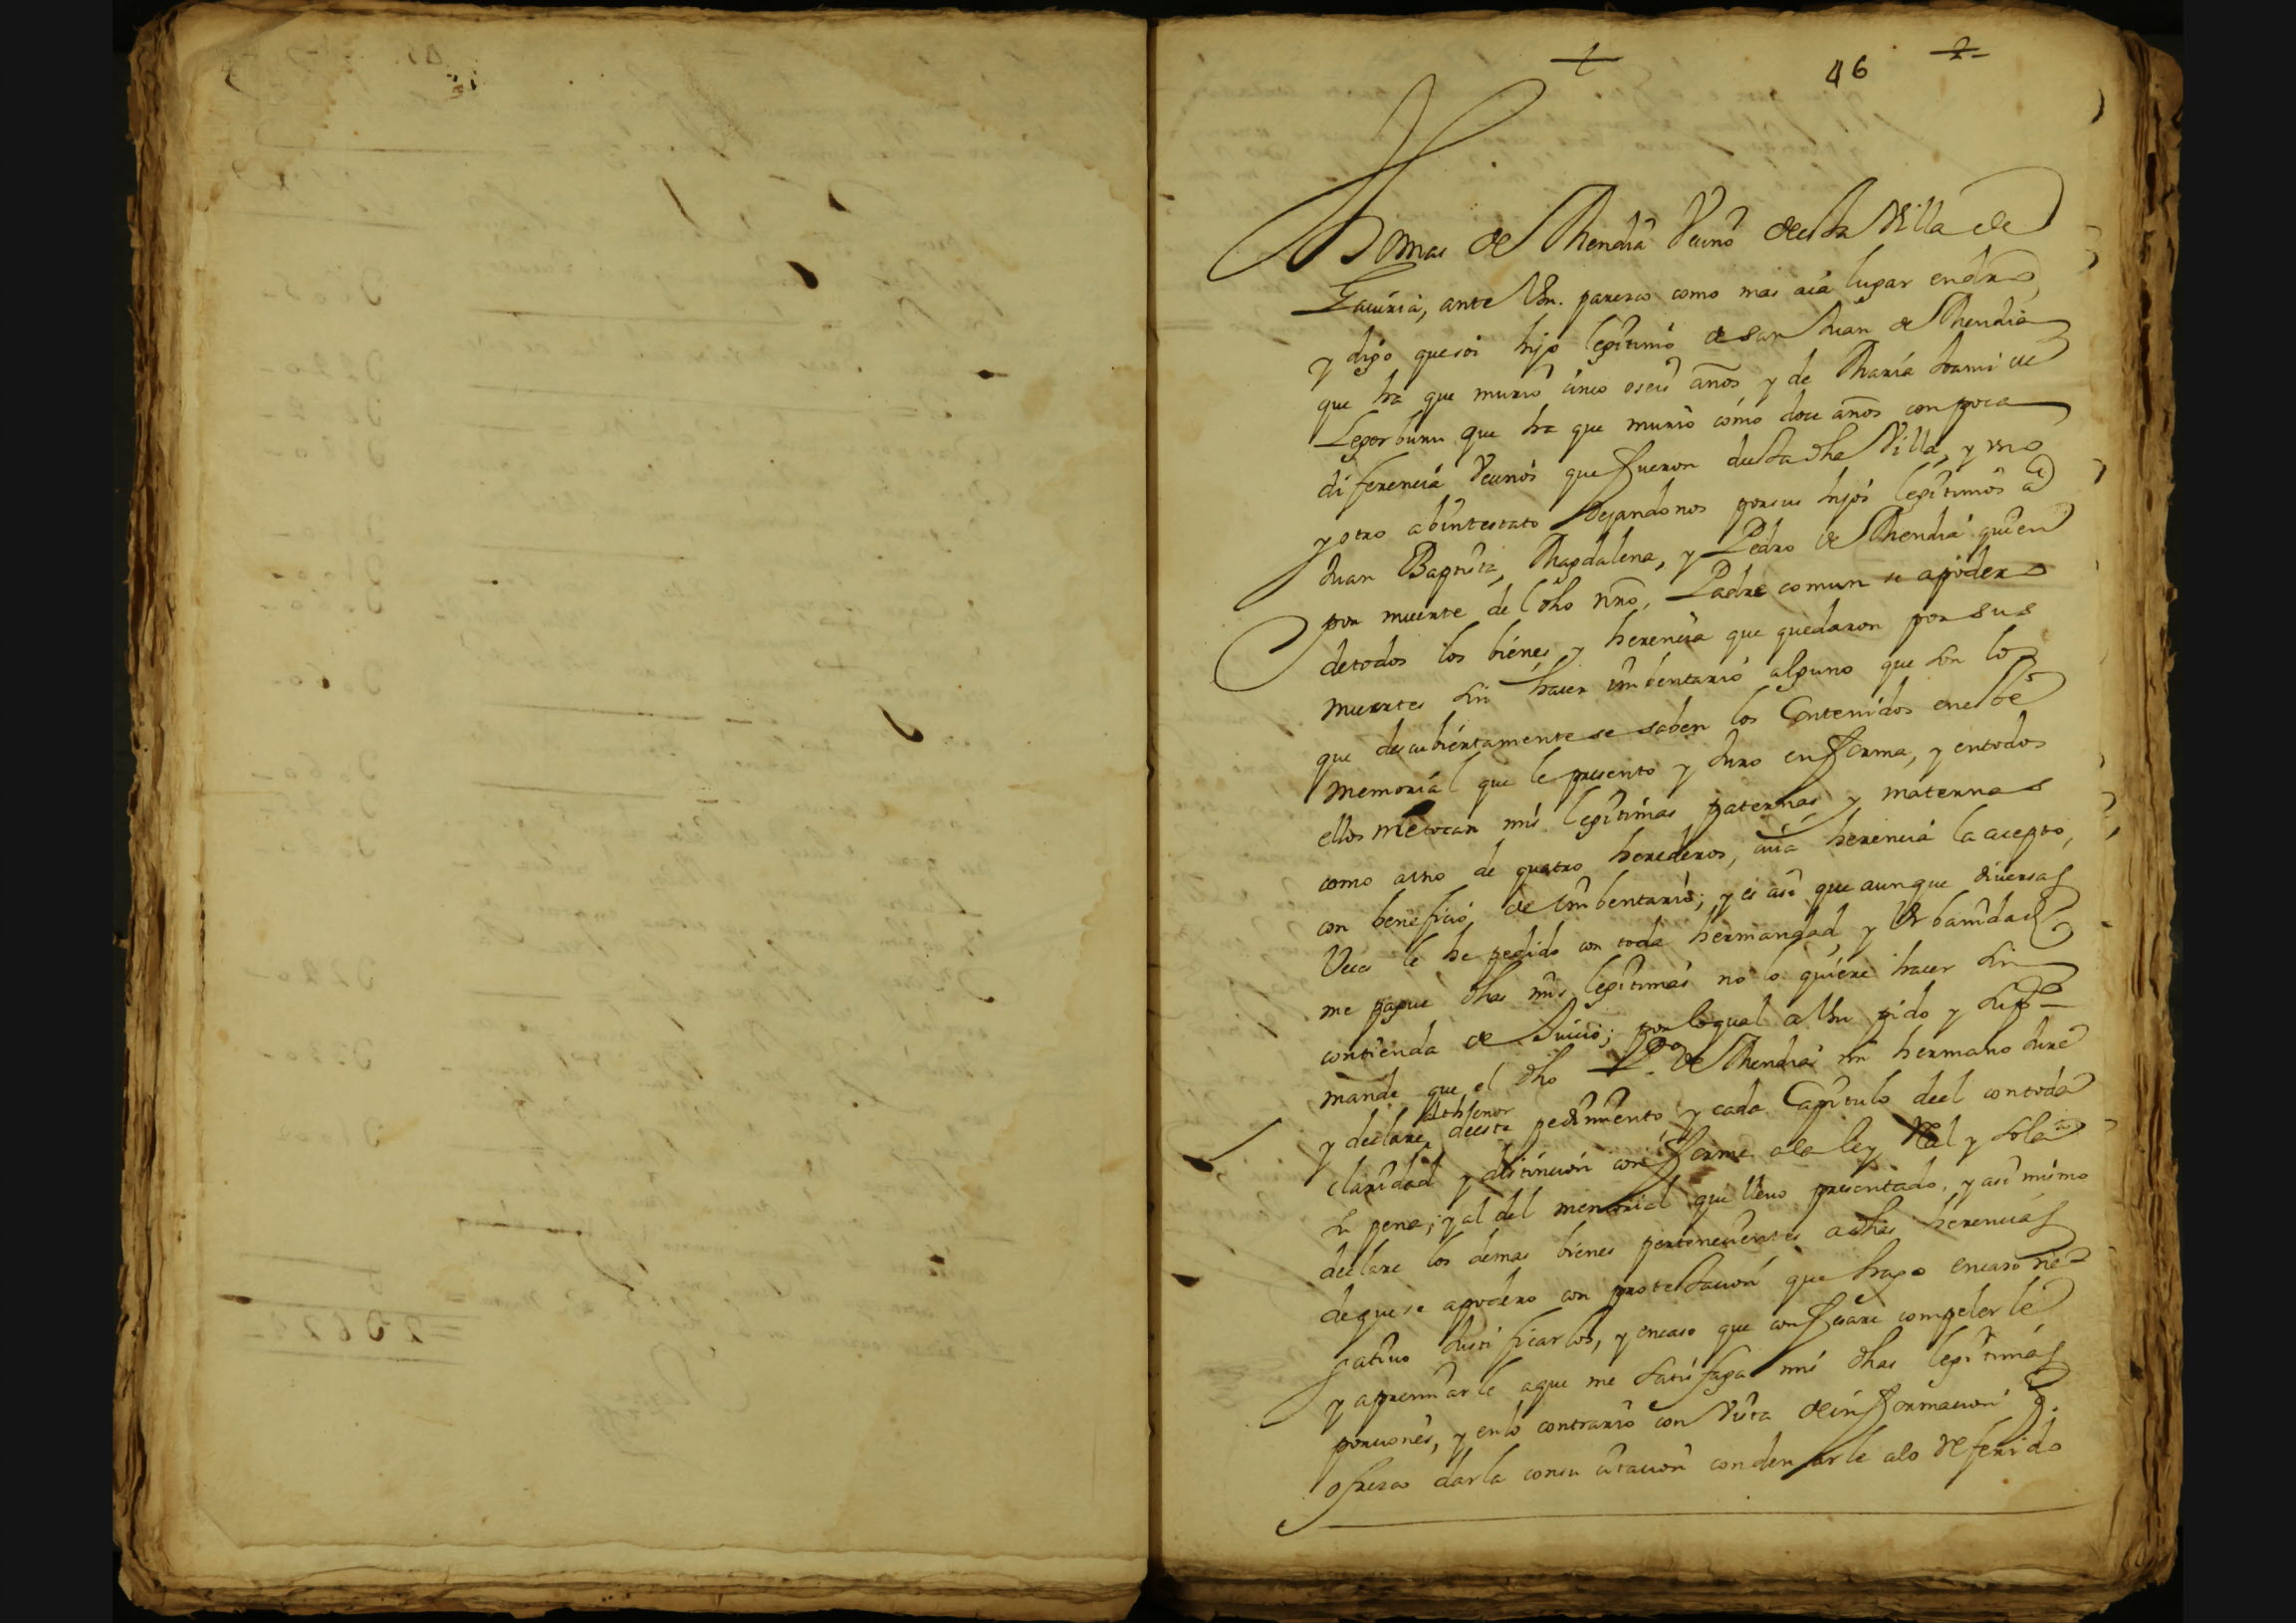 46
Thomas de Mendia Vecino desta Villa de
Gacuria, ante Vm. paresco como mas aia lugar en dro,
y digo que soi hijo legitimo de San Juan de Mendia
que ha que murio cinco o seis años y de Maria Ivami de
Legorburu que ha que murio como doce años con poca
diferencia Vecinos que fueron desta dha Villa, y vno
y otro abintestato dejandonos por sus hijos legitimos a
Juan Baptista, Magdalena, y Pedro de Mendia quien
por muerte del dho nro. Padre comun se apodero
de todos los bienes y herencia que quedaron por sus
muertes sin hacer imbentario alguno que son lo
que descubiertamente se saben los Contenidos en este
memorial que le presento y Juro en forma, y en todos
ellos me tocan mis legitimas paternas y maternas
como a vno de quatro herederos, cuia herencia la acepto,
con beneficio de imbentario; y es asi que aunque diuersas
Veces le he pedido con toda hermandad y Vrbanidad
me pague dhas mis legitimas no lo quiere hacer sin
contienda de Juicio; por lo qual a Vm pido y supco
mande que el dho Po. de Mendia mi hermano Jure
y declare al thenor deeste pedimiento y cada Capitulo deel con toda
claridad y distincion conforme a la ley Real y so la
su pena; y al del memorial que lleuo presentado, y asi mismo
declare los demas bienes pertenecientes a dhas herencias
de que se apodero con protestacion que hago en caso ne-
gatiuo Justificarlos, y en caso que confesare compelerle
y apremiarle a que me satisfaga mis dhas legitimas
porciones, y en lo contrario con Vista de informacion q.
ofresco darla con su citacion condenarle a lo referido